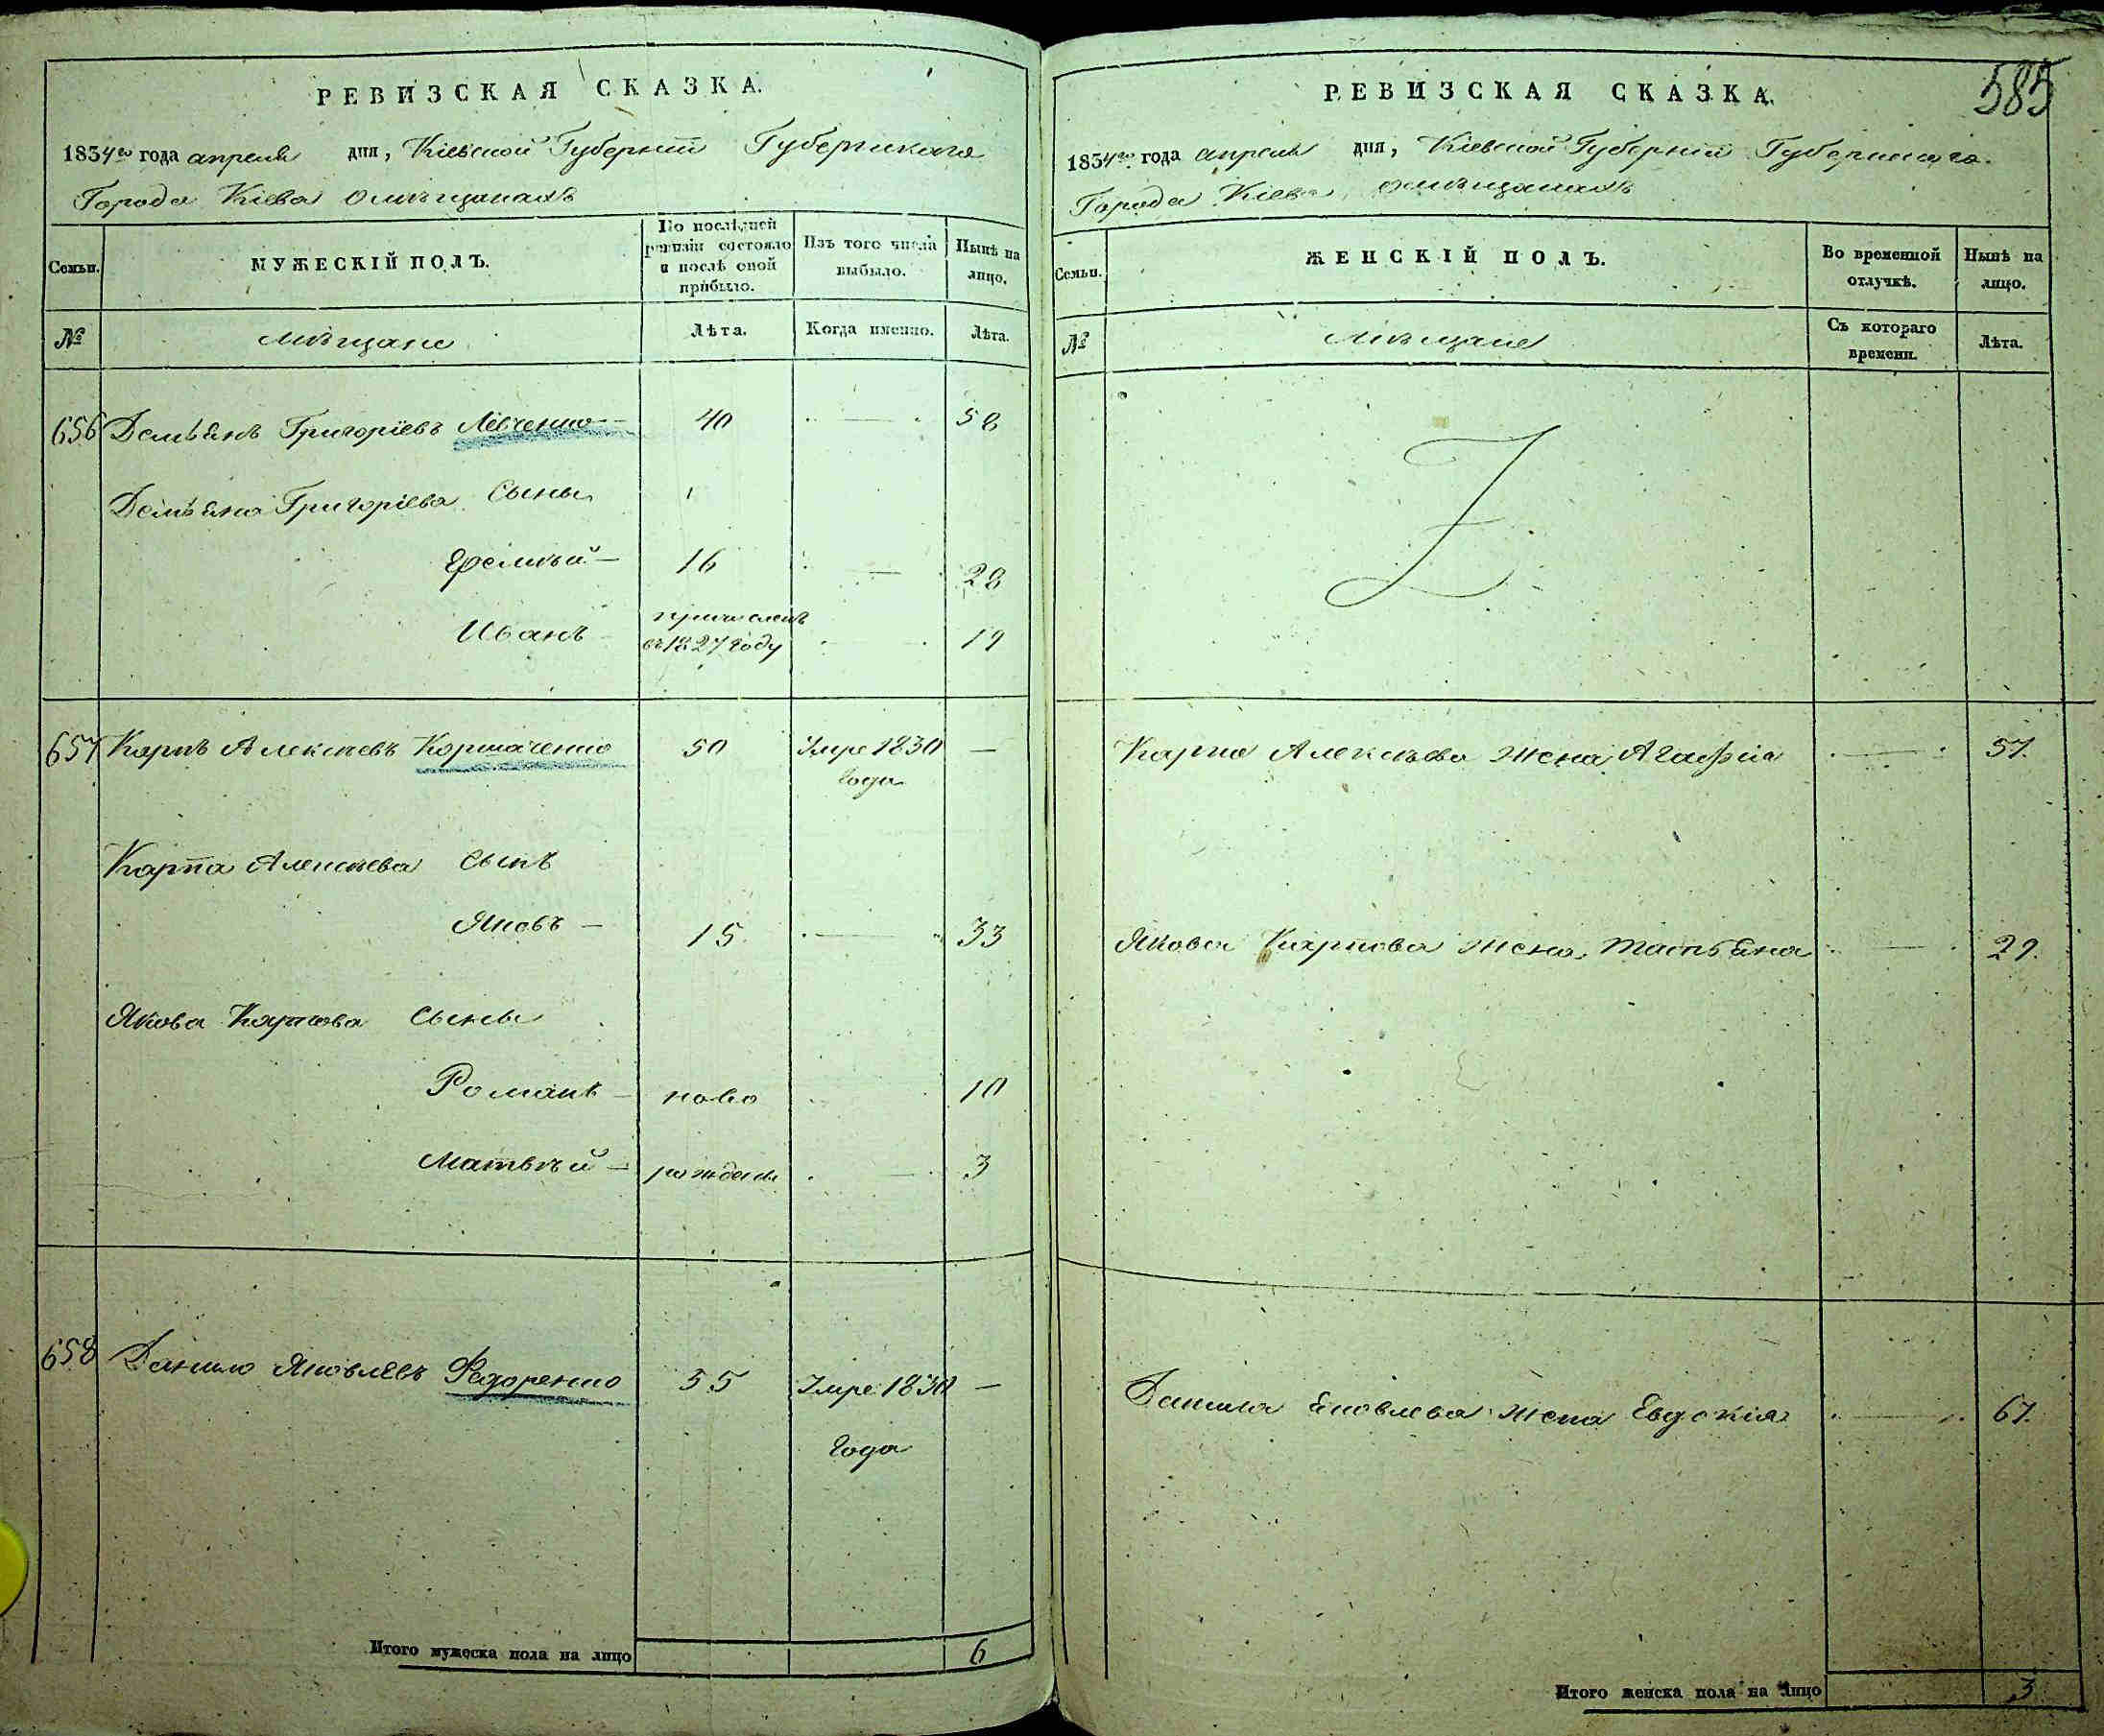 РЕВИЗСКАЯ СКАЗКА.
1834го года апреля дня, Кіевской Губерніи Губернскаго
Города Кіева о мѣщанахъ
Семьи.
МУЖЕСКІЙ ПОЛЪ.
По послѣдней ревизіи состояло и послѣ оной прибыло.
Изъ того числа выбыло.
Нынѣ на лицо.
№
мѣщане
Лѣта.
Когда именно.
Лѣта.
656 Демьянъ Григоріевъ Левченко 40 58
Демьяна Григоріева Сыны
16 28
Иванъ причисленъ въ 1827 году 19
657 Карпъ Алексѣевъ 50 Умре 1830 года —
Карпа Алексѣева сынъ
Яковъ — 15 33
Якова Карпова сыны
Романъ — ново 10
Матвѣй — рождены 3
658 Данило Яковлевъ Федоренко 55 Умре 1830 года —
Итого мужеска пола на лицо 6
585
РЕВИЗСКАЯ СКАЗКА.
1834го года апреля дня, Кіевской Губерніи Губернскаго
Города Кіева, о мѣщанахъ
Семьи.
ЖЕНСКІЙ ПОЛЪ.
Во временной отлучкѣ.
Нынѣ на лицо.
№
мѣщане
Съ котораго времени.
Лѣта.
Карпа Алексѣева жена Агафія 57.
Якова Карпова жена Татьяна 29.
Данила Яковлева жена Евдокія 67.
Итого женска пола на лицо 3